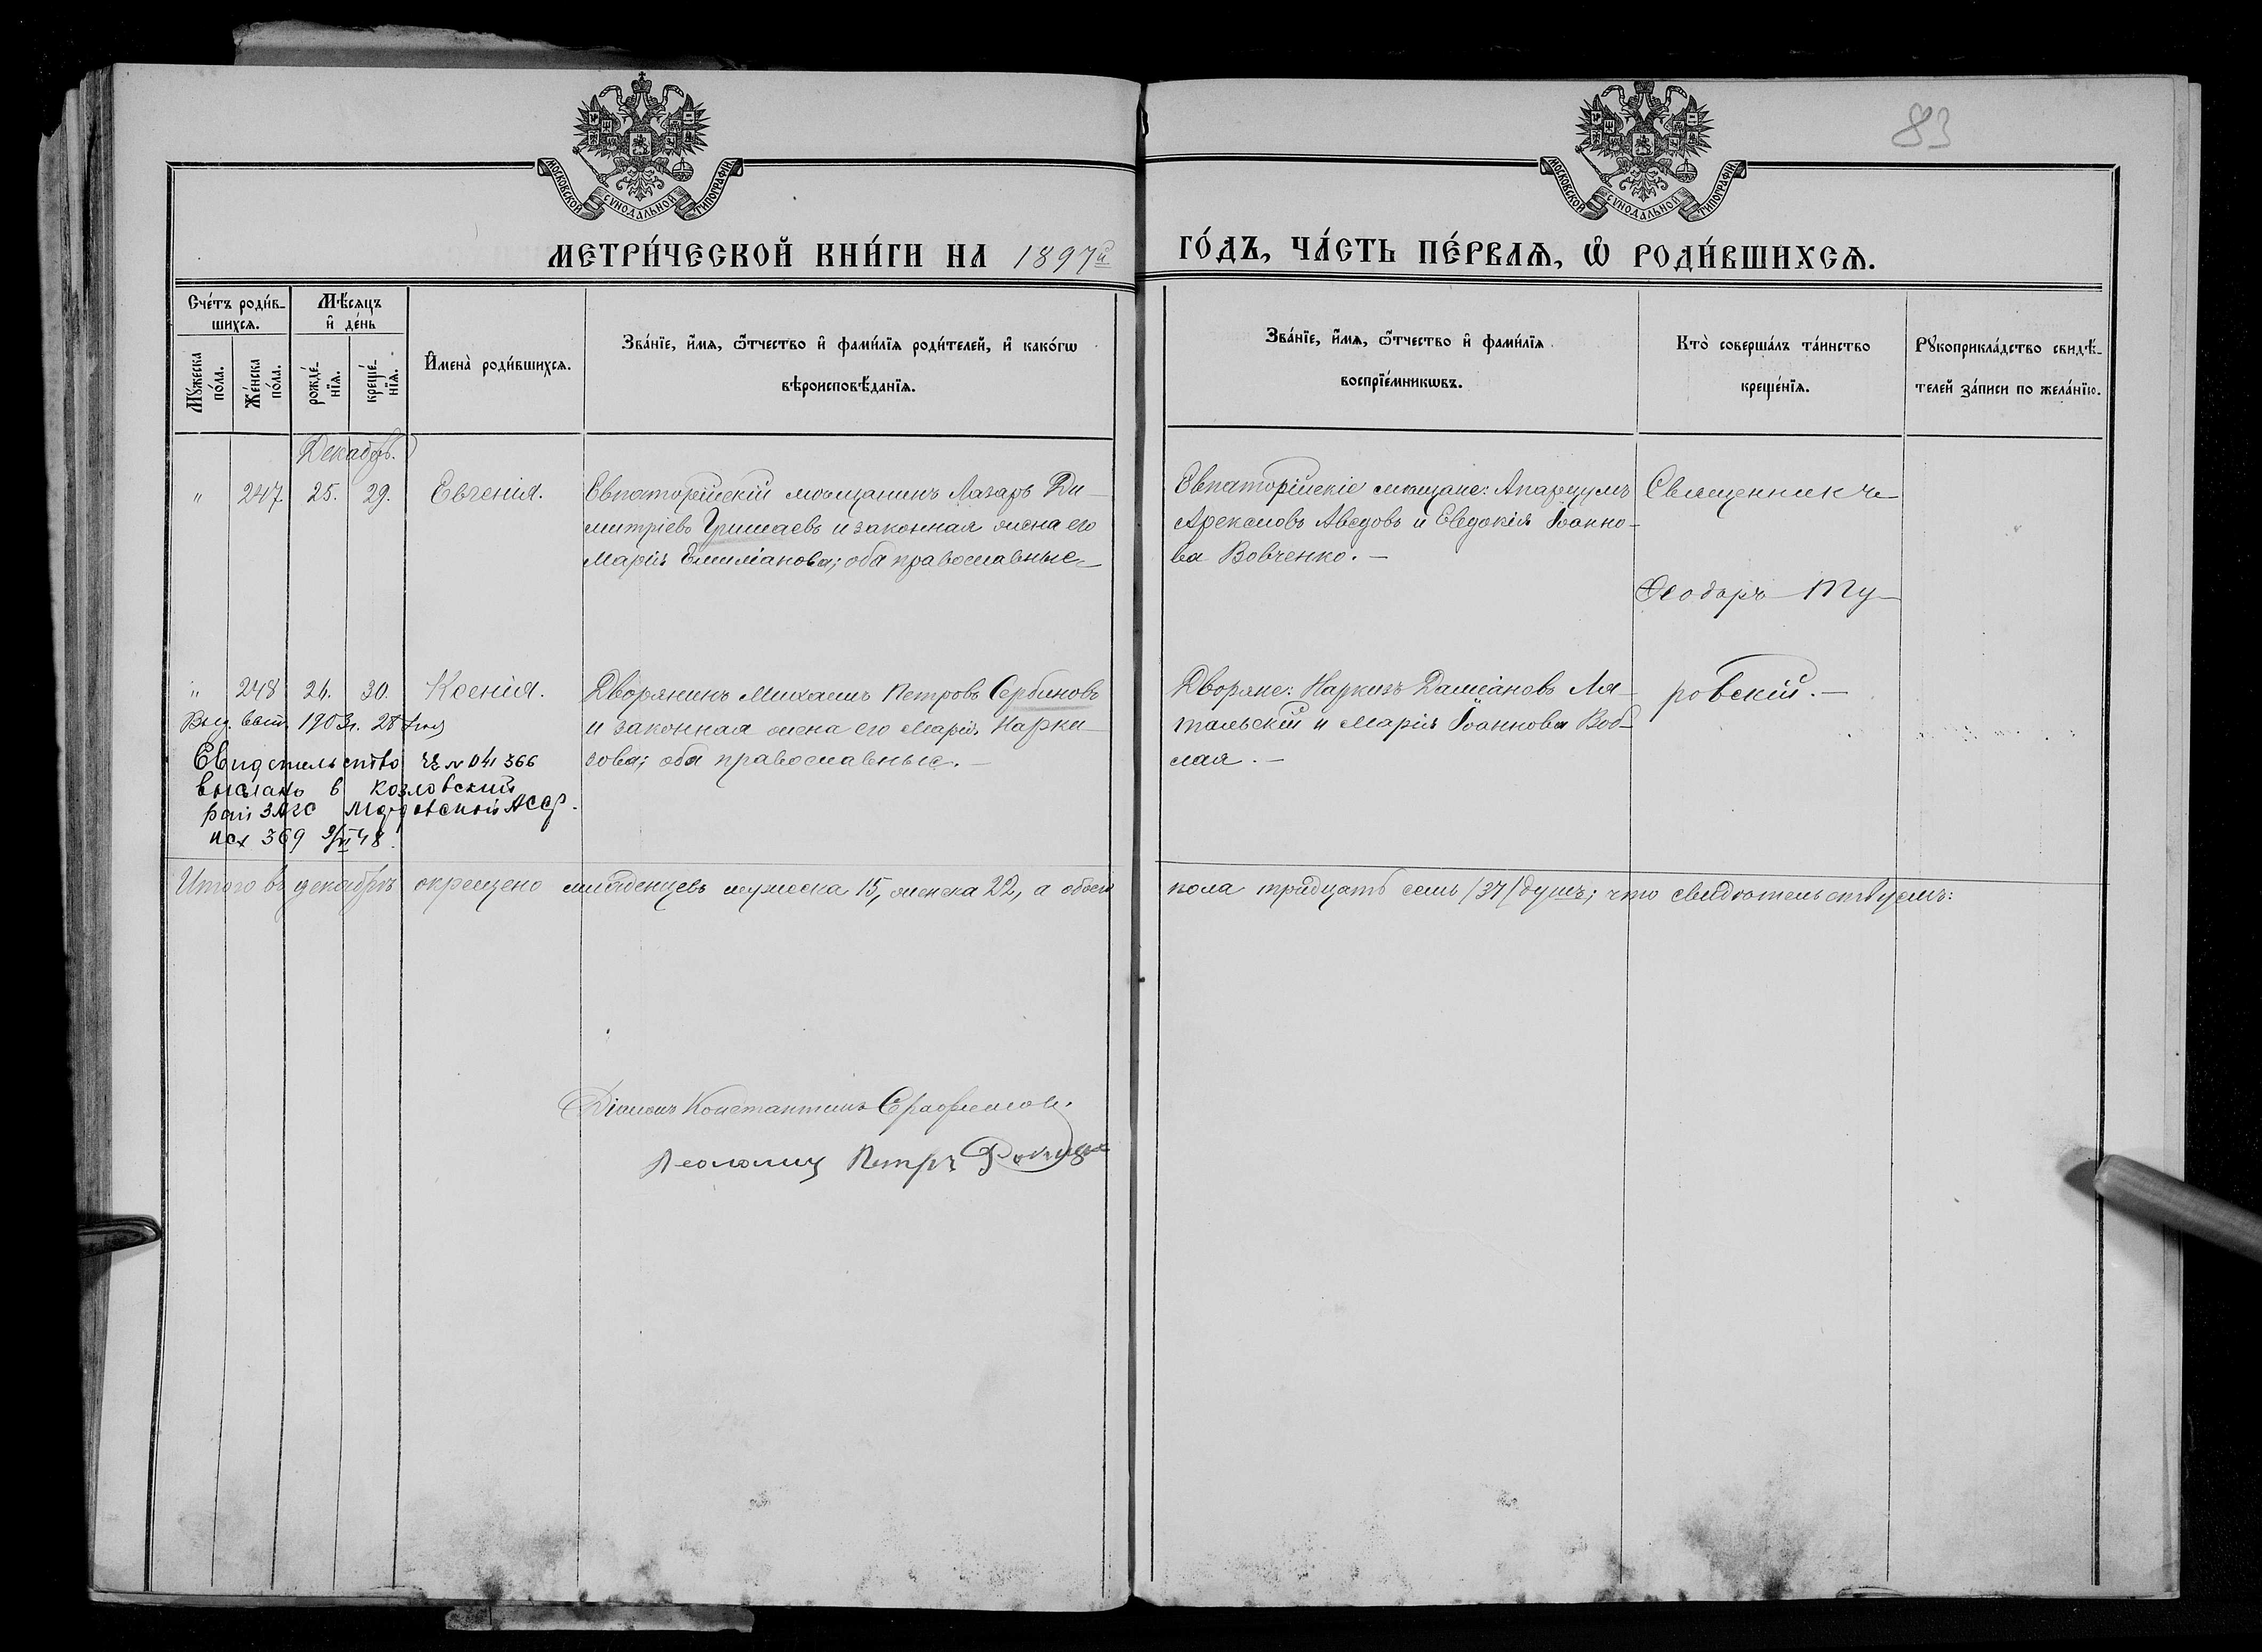 83
МОСКОВСКОЙ СУНОДАЛЬНОЙ ТИПОГРАФІИ
МОСКОВСКОЙ СУНОДАЛЬНОЙ ТИПОГРАФІИ
МЕТРИ́ЧЕСКОЙ КНИ́ГИ НА 1897й ГО́ДЪ, ЧА́СТЬ ПЕ́РВАѦ, Ѡ РОДИ́ВШИХСѦ.
Сче́тъ роди́в-
шихсѧ.
Мꙋжеска по́ла.
Же́нска по́ла.
Мѣ́сѧцъ
и҆ де́нь
рожде́-
нїѧ.
креще́-
нїѧ.
И҆мена̀ роди́вшихсѧ.
Зва́нїе, и҆́мѧ, ѻ҆́тчество и҆ фами́лїѧ роди́телей, и҆ како́гѡ
вѣроисповѣ́данїѧ.
Зва́нїе, и҆́мѧ, ѻ҆́тчество и҆ фами́лїѧ
воспрїе́мникѡвъ.
Кто̀ соверша́лъ та́инство
креще́нїѧ.
Рꙋкоприкла́дство свидѣ́-
телей за́писи по жела́нїю.
Декабрь.
" 247. 25. 29. Евгенія.
Евпаторійскій мѣщанинъ Лазарь Ди-
митріевъ Гришаевъ и законная жена его
Марія Емиліанова; оба православные.—
Евпаторійскіе мѣщане:
Аведовъ и Евдокія Іоанно-
ва Вовченко. —
Священникъ
Ѳеодоръ Ту-
ровскій. —
" 248 26. 30. Ксенія.
Дворянинъ Михаилъ Петровъ Сербиновъ
и законная жена его Марія Нарки-
зова; оба православные. —
Дворяне: Наркизъ Даміановъ Ля-
тальскій и Марія Іоаннова Воб-
лая. —
Выд. вып. 1903г. 28
Свидетельство № 041366
выслано в Козловский
рай ЗАГС Мордовской АССР.
исх 369 9/VI 48.
Итого въ декабрѣ окрещено младенцевъ мужеска 15, женска 22, а обоего пола тридцать семь /37/ душъ; что свидѣтельствуемъ:
Діаконъ Константинъ
Псаломщ Петръ